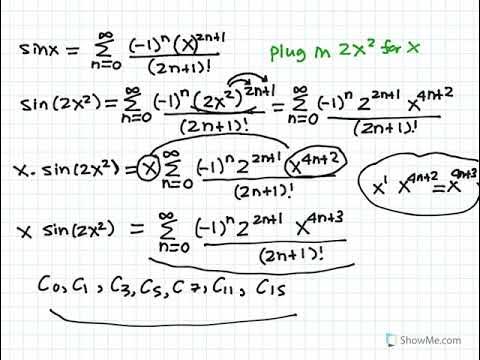 sinx = ∞ Σ n=0 (-1)^n (x)^2n+1 / (2n+1)! plug in 2x² for x
sin(2x²) = ∞ Σ n=0 (-1)^n (2x²)^2n+1 / (2n+1)! = ∞ Σ n=0 (-1)^n 2^2n+1 x^4n+2 / (2n+1)!
x · sin(2x²) = x ∞ Σ n=0 (-1)^n 2^2n+1 x^4n+2 / (2n+1)!
x¹ x^4n+2 = x^4n+3
x sin(2x²) = ∞ Σ n=0 (-1)^n 2^2n+1 x^4n+3 / (2n+1)!
C₀, C₁, C₃, C₅, C7, C₁₁, C₁₅
ShowMe.com